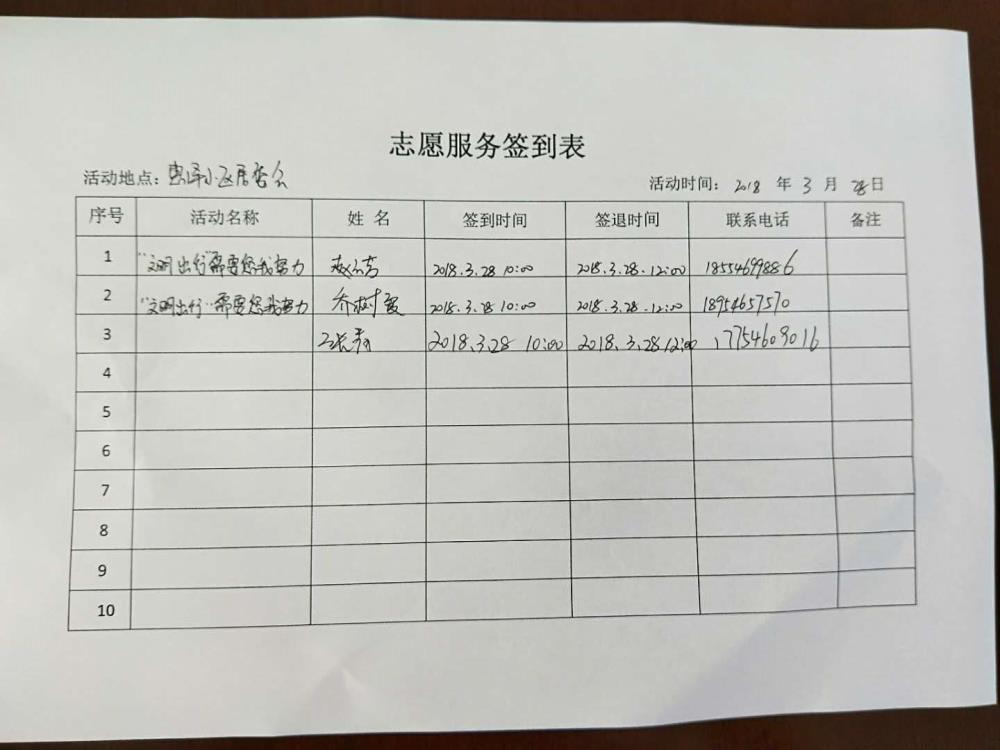 志愿服务签到表
活动地点：惠泽小区居委会 活动时间： 2018 年 3 月 28 日
序号 活动名称 姓名 签到时间 签退时间 联系电话 备注
1 “文明出行”需要您我努力 2018.3.28 10:00 2018.3.28.12:00 18554699886
2 “文明出行”需要您我努力 乔树霞 2018.3.28 10:00 2018.3.28.12:00 18954657570
3 张秀 2018.3.28 10:00 2018.3.28 12:00 17754609016
4
5
6
7
8
9
10